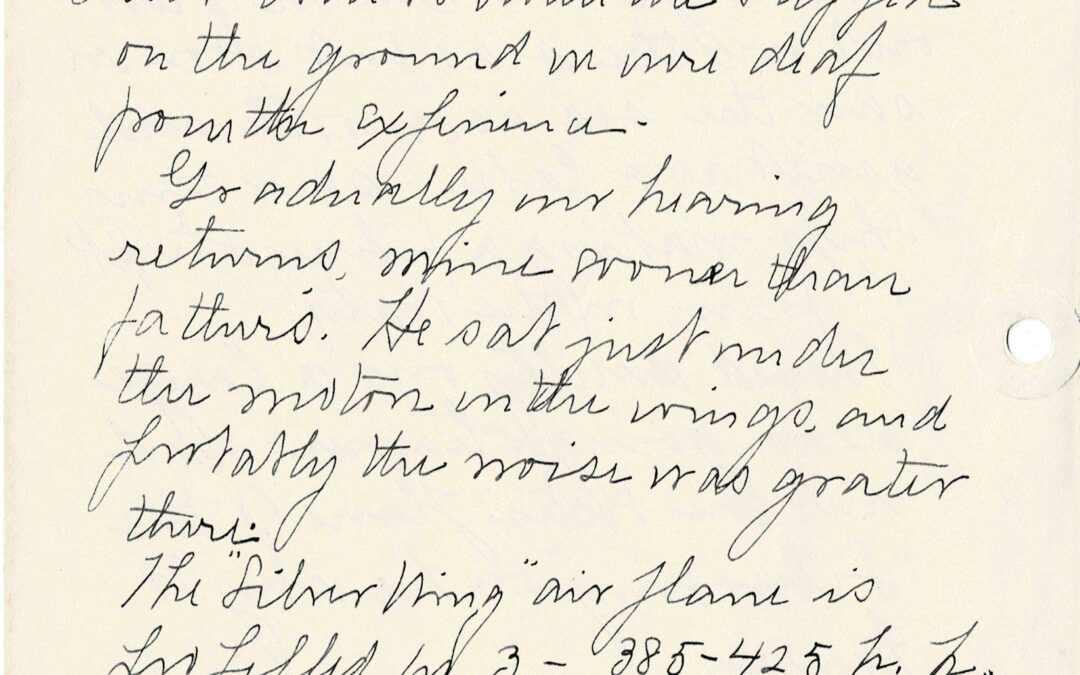 on the ground we were deaf
from the experience.
Gradually our hearing
returns, mine sooner than
father's. He sat just under
the motor in the wings, and
probably the noise was greater
there.
The "Silver Wing" air plane is
propelled by 3 - 385-425 h. p.